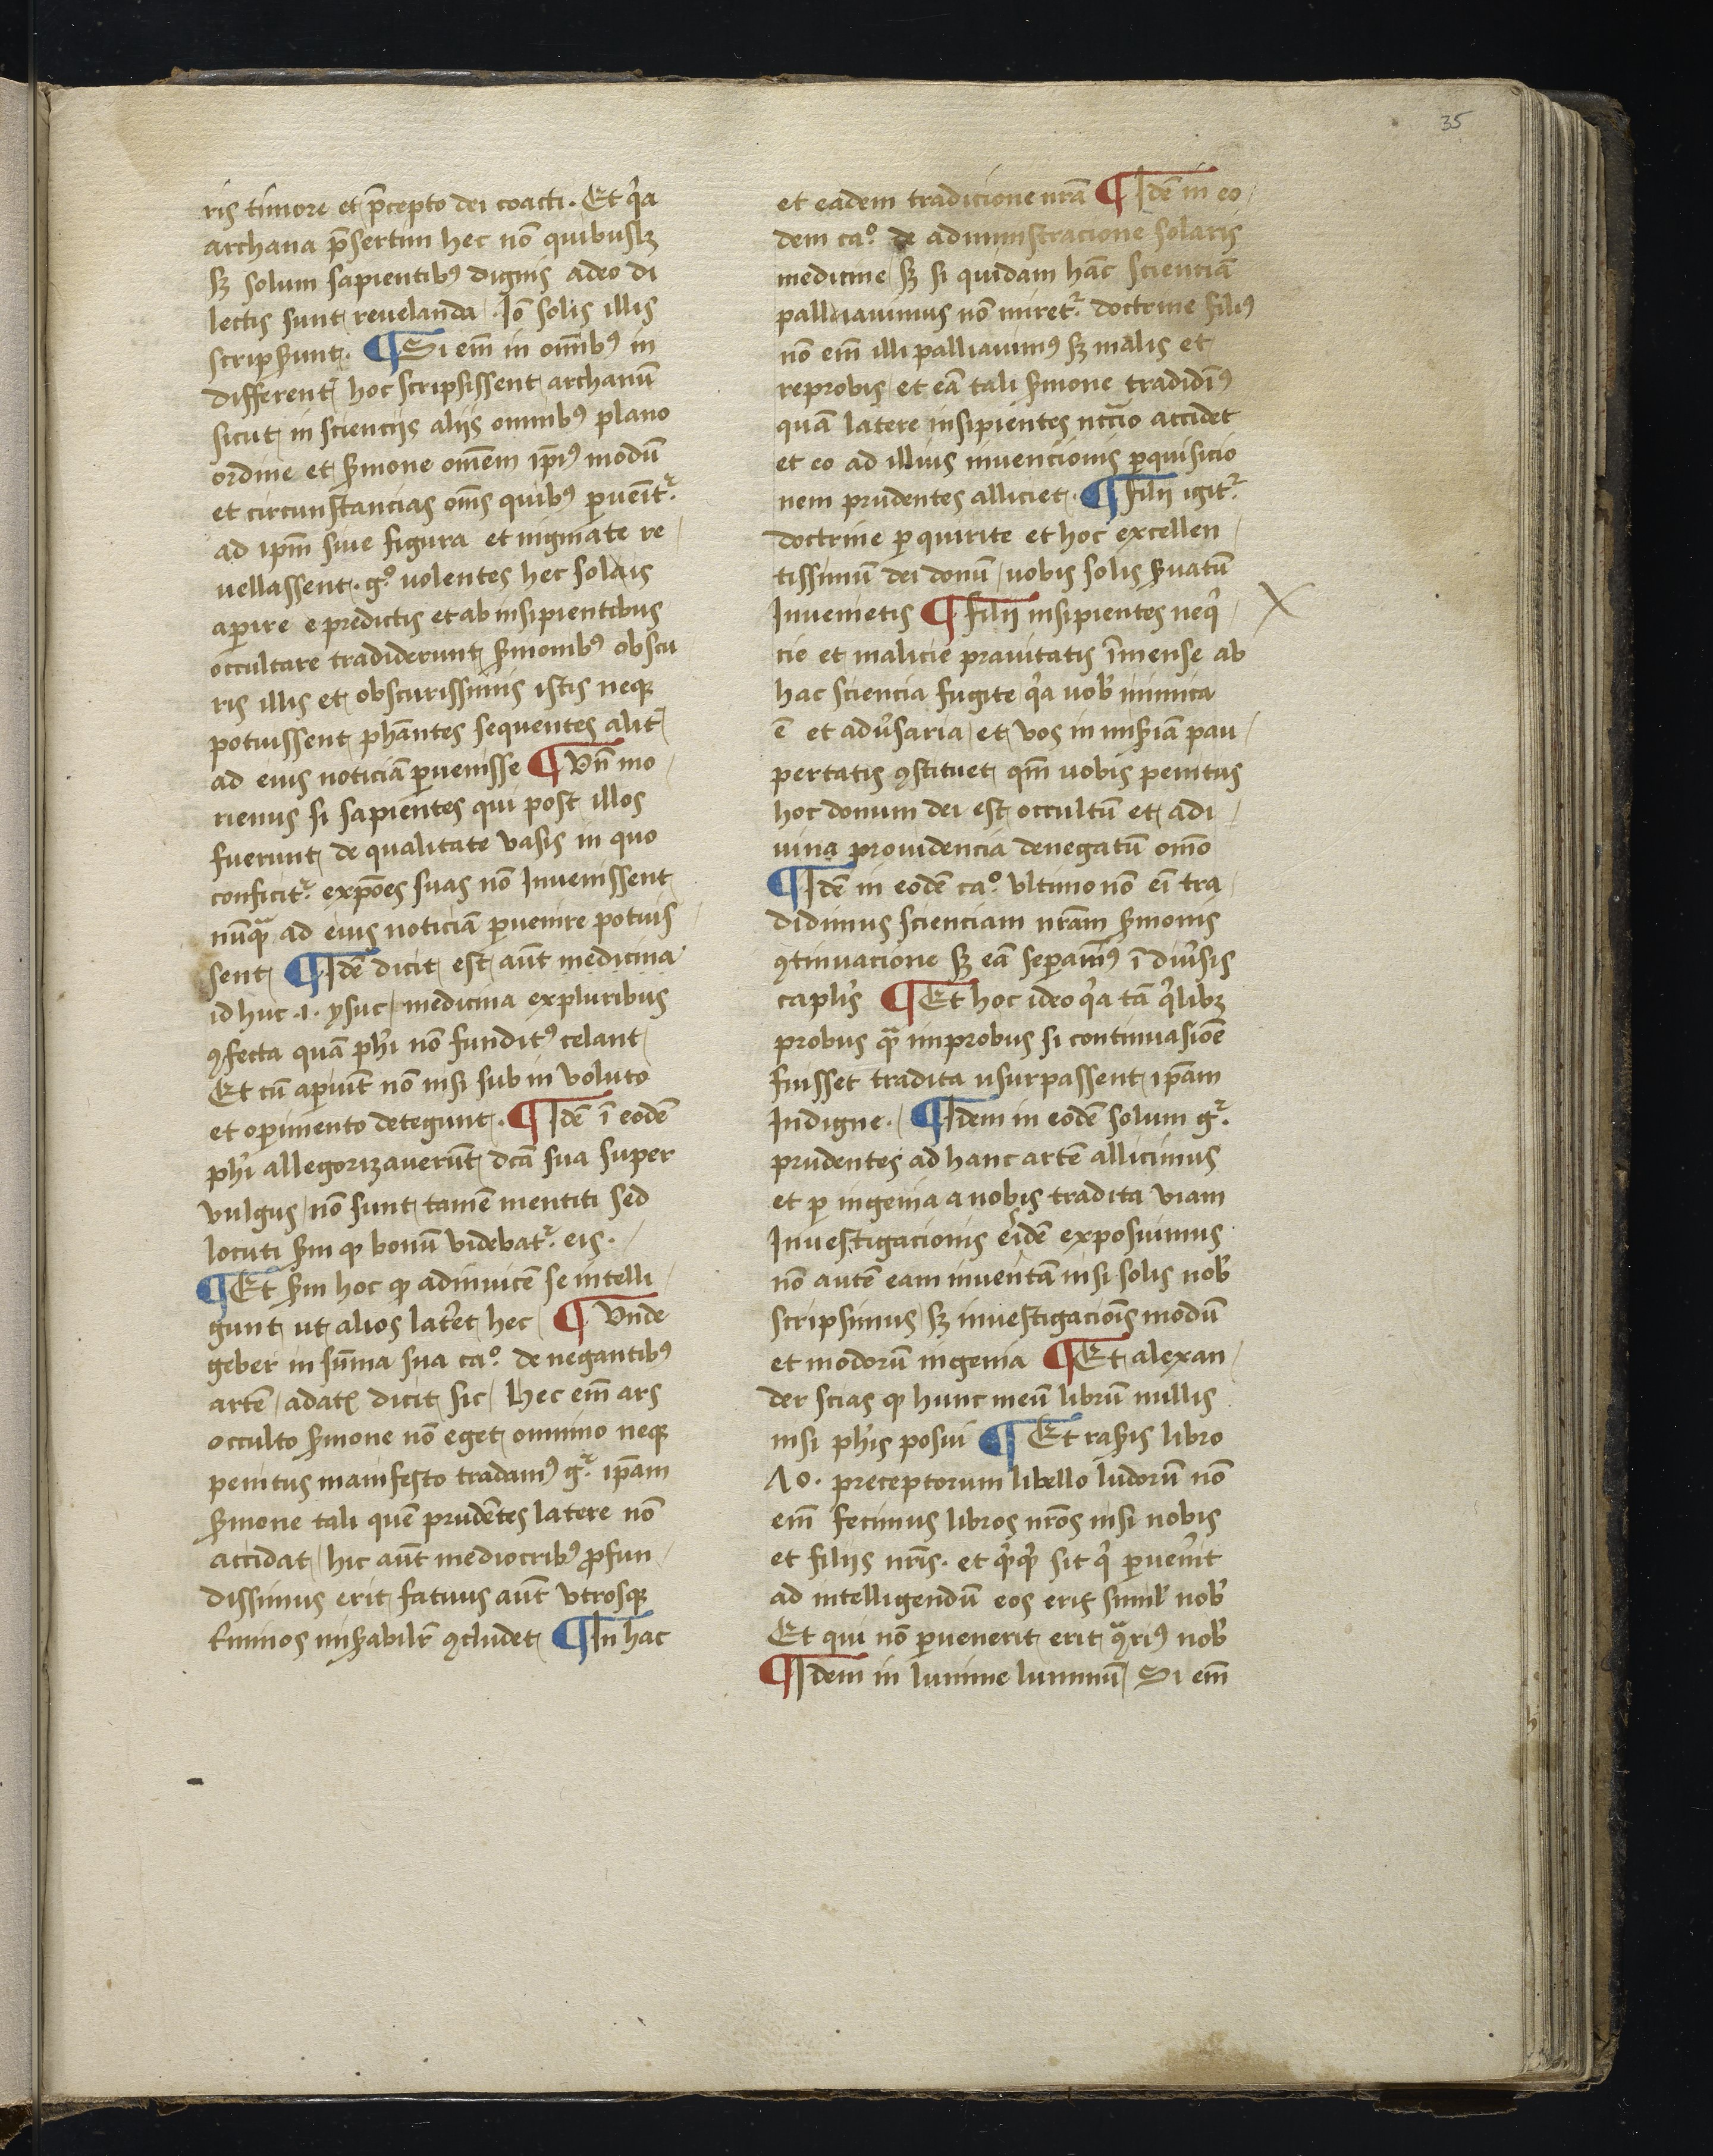 35
ris timore et p̄cepto dei coacti. Et qͥa
archana p̄sertim hec nō quibuslꝫ
sꝫ solum sapientibꝰ dignis adeo di
lectis sunt reuelanda. Iō solis illis
scripserunt. ¶ Si em̄ in om̄ibꝰ in
different̄ hoc scripsissent archanū
sicut in scienciis aliis omnibꝰ plano
ordine et s̄mone omēm ip̄iꝰ modū
et circunstancias om̄s quibꝰ ꝑuenit᷑
ad ipm̄ siue figura et nigmate re
uellassent. gͦ uolentes hec solaris
aꝑire e predictis et ab insipientibus
occultare tradiderunt s̄monibꝰ obscu
ris illis et obscurissimis istis neqꝫ
potuissent phāntes sequentes alit̄
ad eius noticiā ꝑuenisse ¶ Vn̄ mo
rienus si sapientes qui post illos
fuerunt de qualitate vasis in quo
conficit᷑ expōes suas nō Inuenissent
nūqᷓ ad eius noticiā ꝑuenire potuis
sent ¶ Idē dicit est aūt medicina
id huc .1. ysuc medicina ex pluribus
ꝯfecta quā phī nō funditꝰ celant
Et cū aꝑiūt nō nisi sub in voluto
et oꝑimento detegunt. ¶ Idē ī eodē
phī allegorizauerūt dc̄a sua super
vulgus nō sunt tamē mentiti sed
locuti sm̄ ꝙ bonū videbat᷑ eis.
¶ Et sm̄ hoc ꝙ adinuicē se intelli
gunt ut alios lateret hec ¶ Vnde
geber in sūma sua caͦ. de negantibꝰ
artē adat̄ dicit sic Hec em̄ ars
occulto s̄mone nō eget omnino neqꝫ
penitus manifesto tradamꝰ g᷑ ip̄am
s̄mone tali quē prudētes latere nō
accidat hic aūt mediocribꝰ ꝓfun
dissimus erit fatuus aūt vtrosqꝫ
t̄minos mis̄abilit̄ ꝯcludet ¶ In hac
et eadem tradicione nrā ¶ Idē in eo
dem caͦ. de administracione solaris
medicine sꝫ si quidam hāc scienciā
palliauimus nō miret᷑ doctrine filiꝰ
nō em̄ illi palliauimꝰ sꝫ malis et
reprobis et eā tali s̄mone tradidimꝰ
quā latere insipientes nccio accidet
et eo ad illius inuencionis ꝑquisicio
nem prudentes alliciet. ¶ filii igit᷑
doctrine ꝑ quirite et hoc excellen
tissimū dei donū uobis solis s̄uatū
Inuenietis ¶ filii insipientes neqͥ
cie et malicie prauitatis īmense ab
hac sciencia fugite qͥa uob̄ inimica
ē et adūsaria et vos in mis̄iā pau
pertatis ꝯstituet qm̄ uobis penitus
hoc donum dei est occultū et a di
uina prouidencia denegatū om̄o
¶ Idē in eodē caͦ. vltimo nō eī tra
didimus scienciam nrām s̄monis
ꝯtinuacione sꝫ eā seꝑauimꝰ ī diūsis
caplis ¶ Et hoc ideo qͥa tā qͥlibꝫ
probus qᷓ improbus si continuasiōe
fuisset tradita usurpassent ip̄am
Indigne. ¶ Idem in eodē solum g᷑.
prudentes ad hanc artē allicimus
et ꝑ ingenia a nobis tradita viam
Inuestigacionis eidē exposuimus
nō autē eam inuentā nisi solis nob̄
scripsimus sꝫ inuestigaciois modū
et modorū ingenia ¶ Et alexan
der scias ꝙ hunc meū librū nullis
nisi phīs posui ¶ Et rasis libro
Λo. preceptorum libello ludorū nō
em̄ fecimus libros nrōs nisi nobis
et filiis nrīs. et qͥsqͥs sit qͥ ꝑuenit
ad intelligendū eos erit simil̄ nob̄
Et qui nō ꝑuenerit erit ꝯᷓriꝰ nob̄
¶ Idem in lumine luminū Si em̄